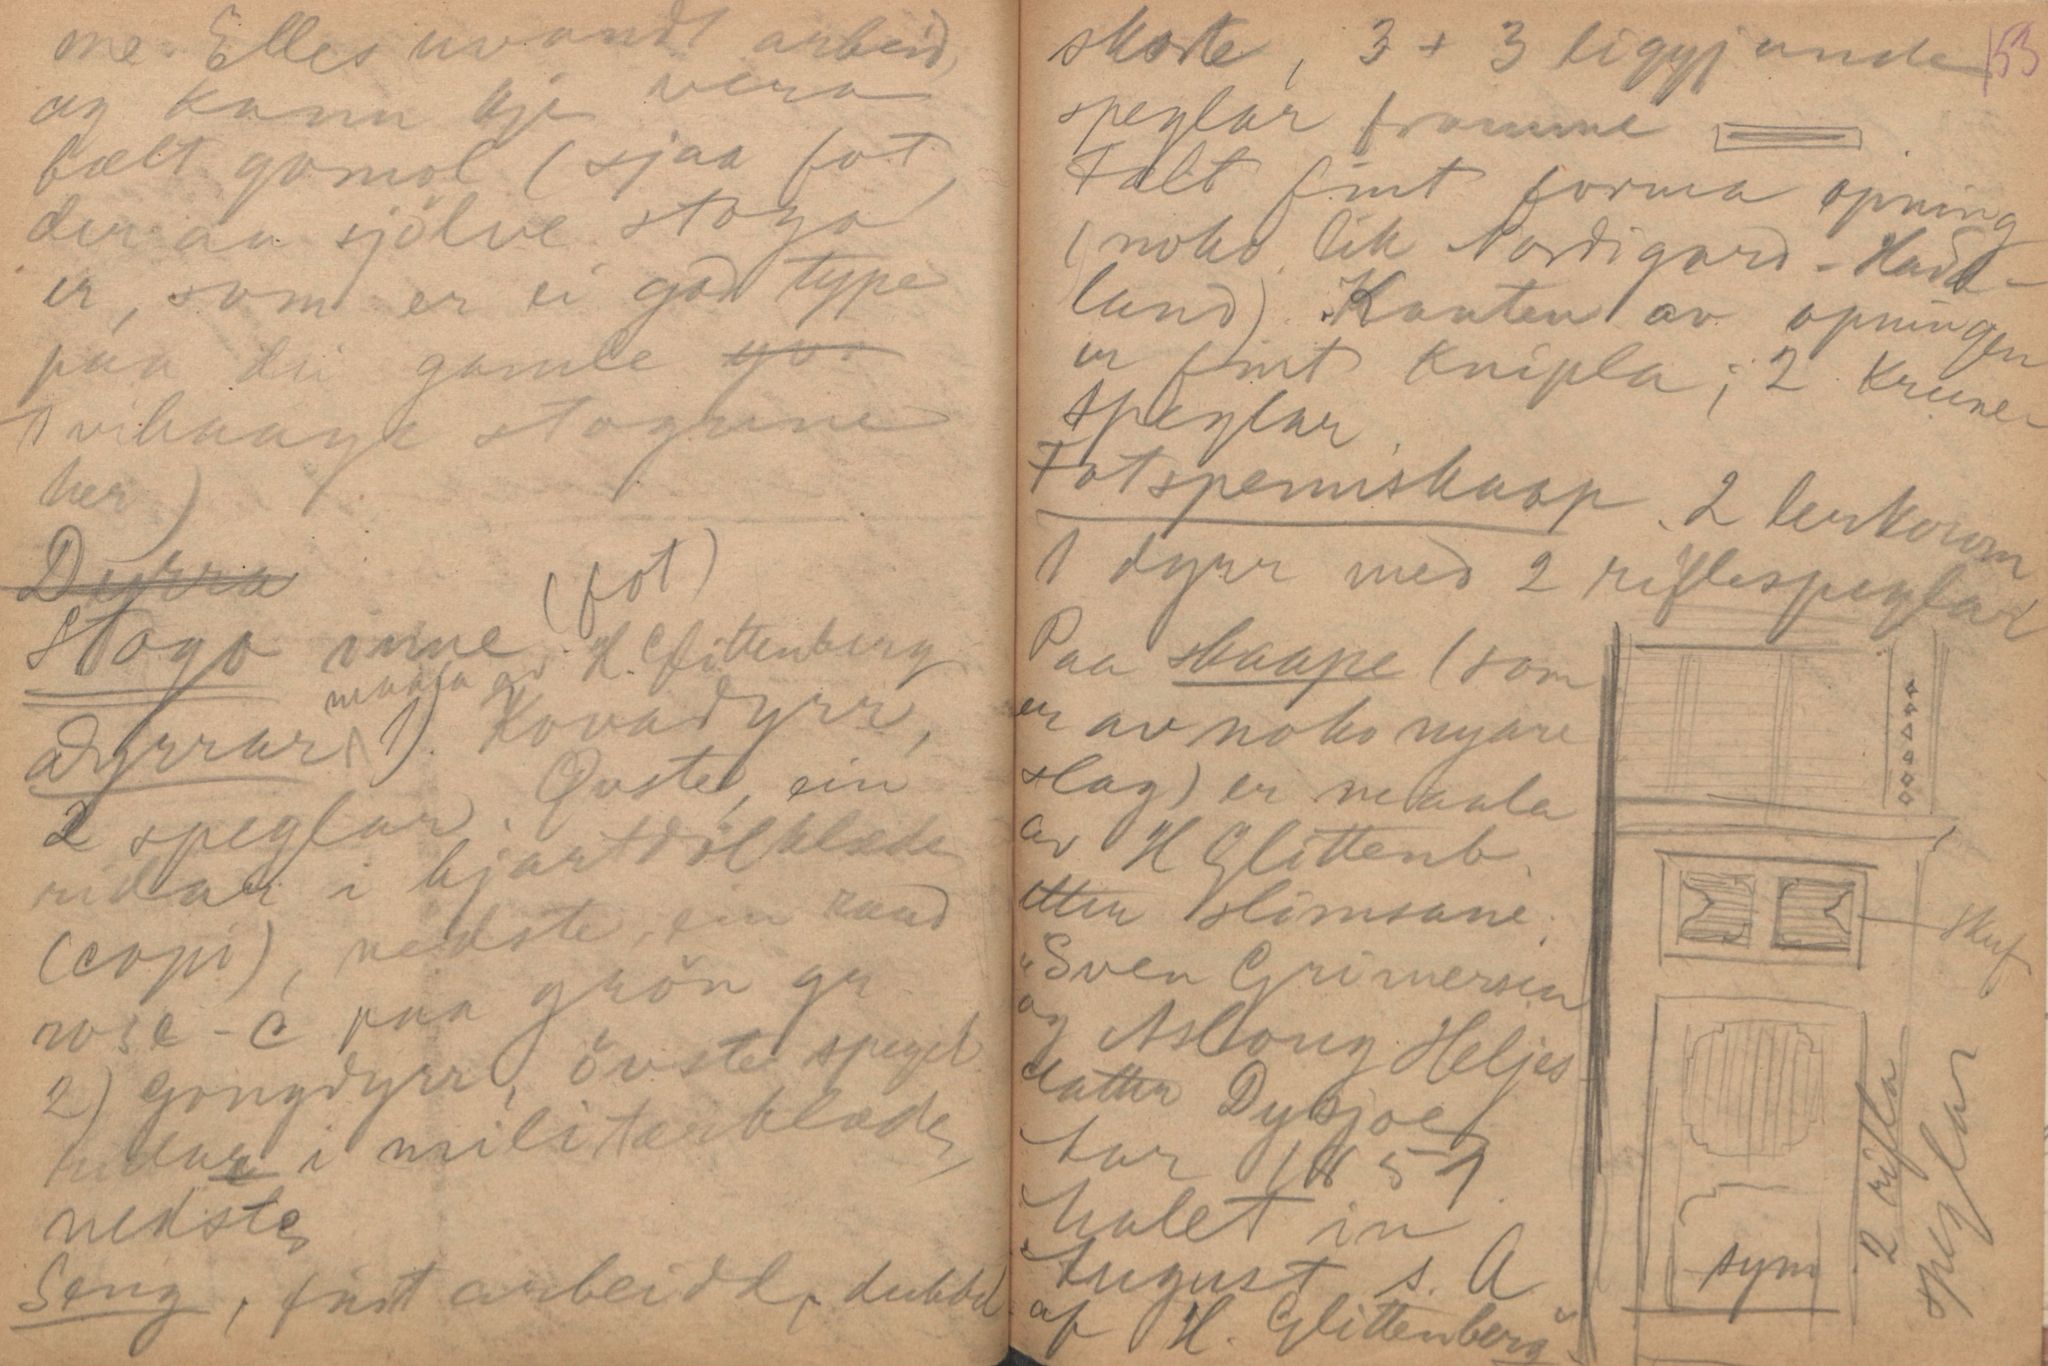 me. Elles uvandt arbeid,
og kann kje vera
fælt gamol (sjaa fot,
der aa sjölve stoga
er, som er ei god type
paa dei gamle
tvihaage stogune
her)
Durra
Stogo inne (fot)
maala av H. Glittenberg
Dyrrar 1). Kovadyrr,
2 speglar. Övste, ein
ridar i hjartdölklæde
(copi), nedste, ein raud
rose - c paa grön gr
2) Gongdyrr, övste spegel
ridar i militærklæde,
nedste
Seng, fint arbeidd, dubbel
53
skorte, 3 + 3 liggjande
speglar framme
Talt fint forma opning
(noko lik Nordigard - Hadd-
land). Kanten av opningen
er fint knipla; 2 krune-
speglar.
Fotspenniskaap. 2 lerkorom
1 dyrr med 2 riflespeglar
Paa skaape (som
er av noko nyare
slag) er maala
av H Glittenb.
etter slimsane.
"Sven Grimersen
og Asloug Heljes
datter Dysjoe
har 1851
malet in
August s. A
af H. Glittenberg"
skuf
2 rifla
speglar
sym